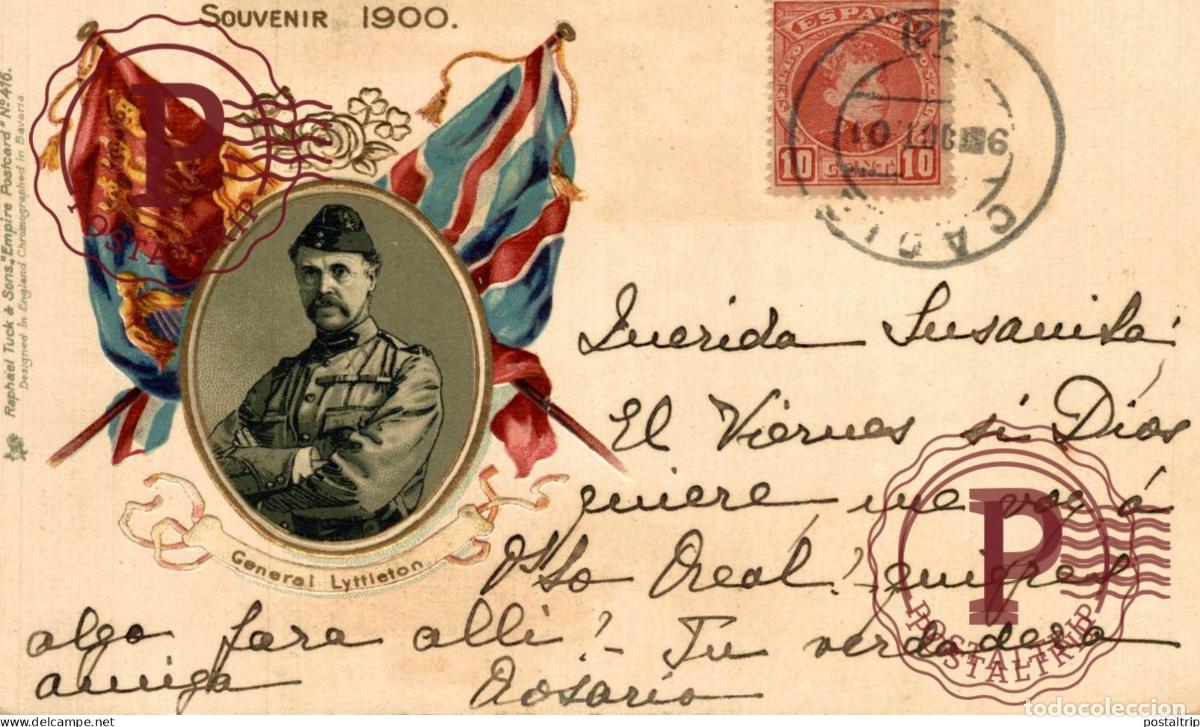 SOUVENIR 1900.
Raphael Tuck & Sons, "Empire Postcard" No 416.
Designed in England Chromographed in Bavaria.
ESPAÑA
10 CENT. 10
CADIZ
9 JUL 01
General Lyttleton
Querida Susanita:
El Viernes si Dios
quiere me voy á
Pto Real! quieres
algo para alli! – Tu verdadera
amiga Rosario
P
POSTALTRIP
P
POSTALTRIP
Es.todocoleccion.net/tienda/postaltrip
postaltrip
todocoleccion